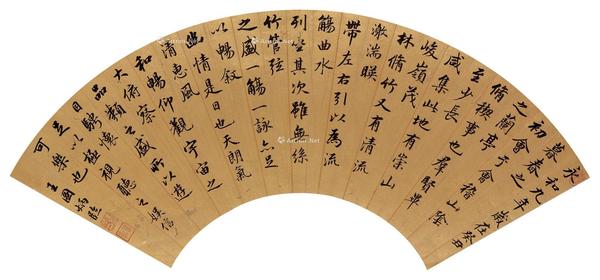 永和九年歲在癸丑
暮春之
初會于會稽山陰
之蘭亭
脩禊事也群賢畢
至少長
咸集此地有崇山
峻嶺茂
林脩竹又有清流
激湍暎
帶左右引以為流
觴曲水
列坐其次雖無絲
竹管弦
之盛一觴一詠亦足
以暢敘
幽情是日也天朗氣
清惠風
和暢仰觀宇宙之
大俯察
品類之盛所以遊
目騁懷
足以極視聽之娛信
可樂也
王國炳臨